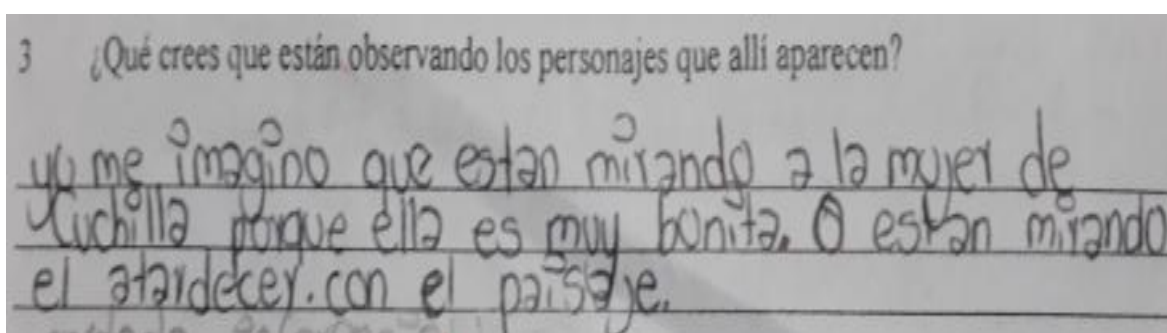 3 ¿Qué crees que están observando los personajes que allí aparecen?
yo me imagino que estan mirando a la mujer de
cuchilla porque ella es muy bonita. O están mirando
el atardecer. con el paisaje.